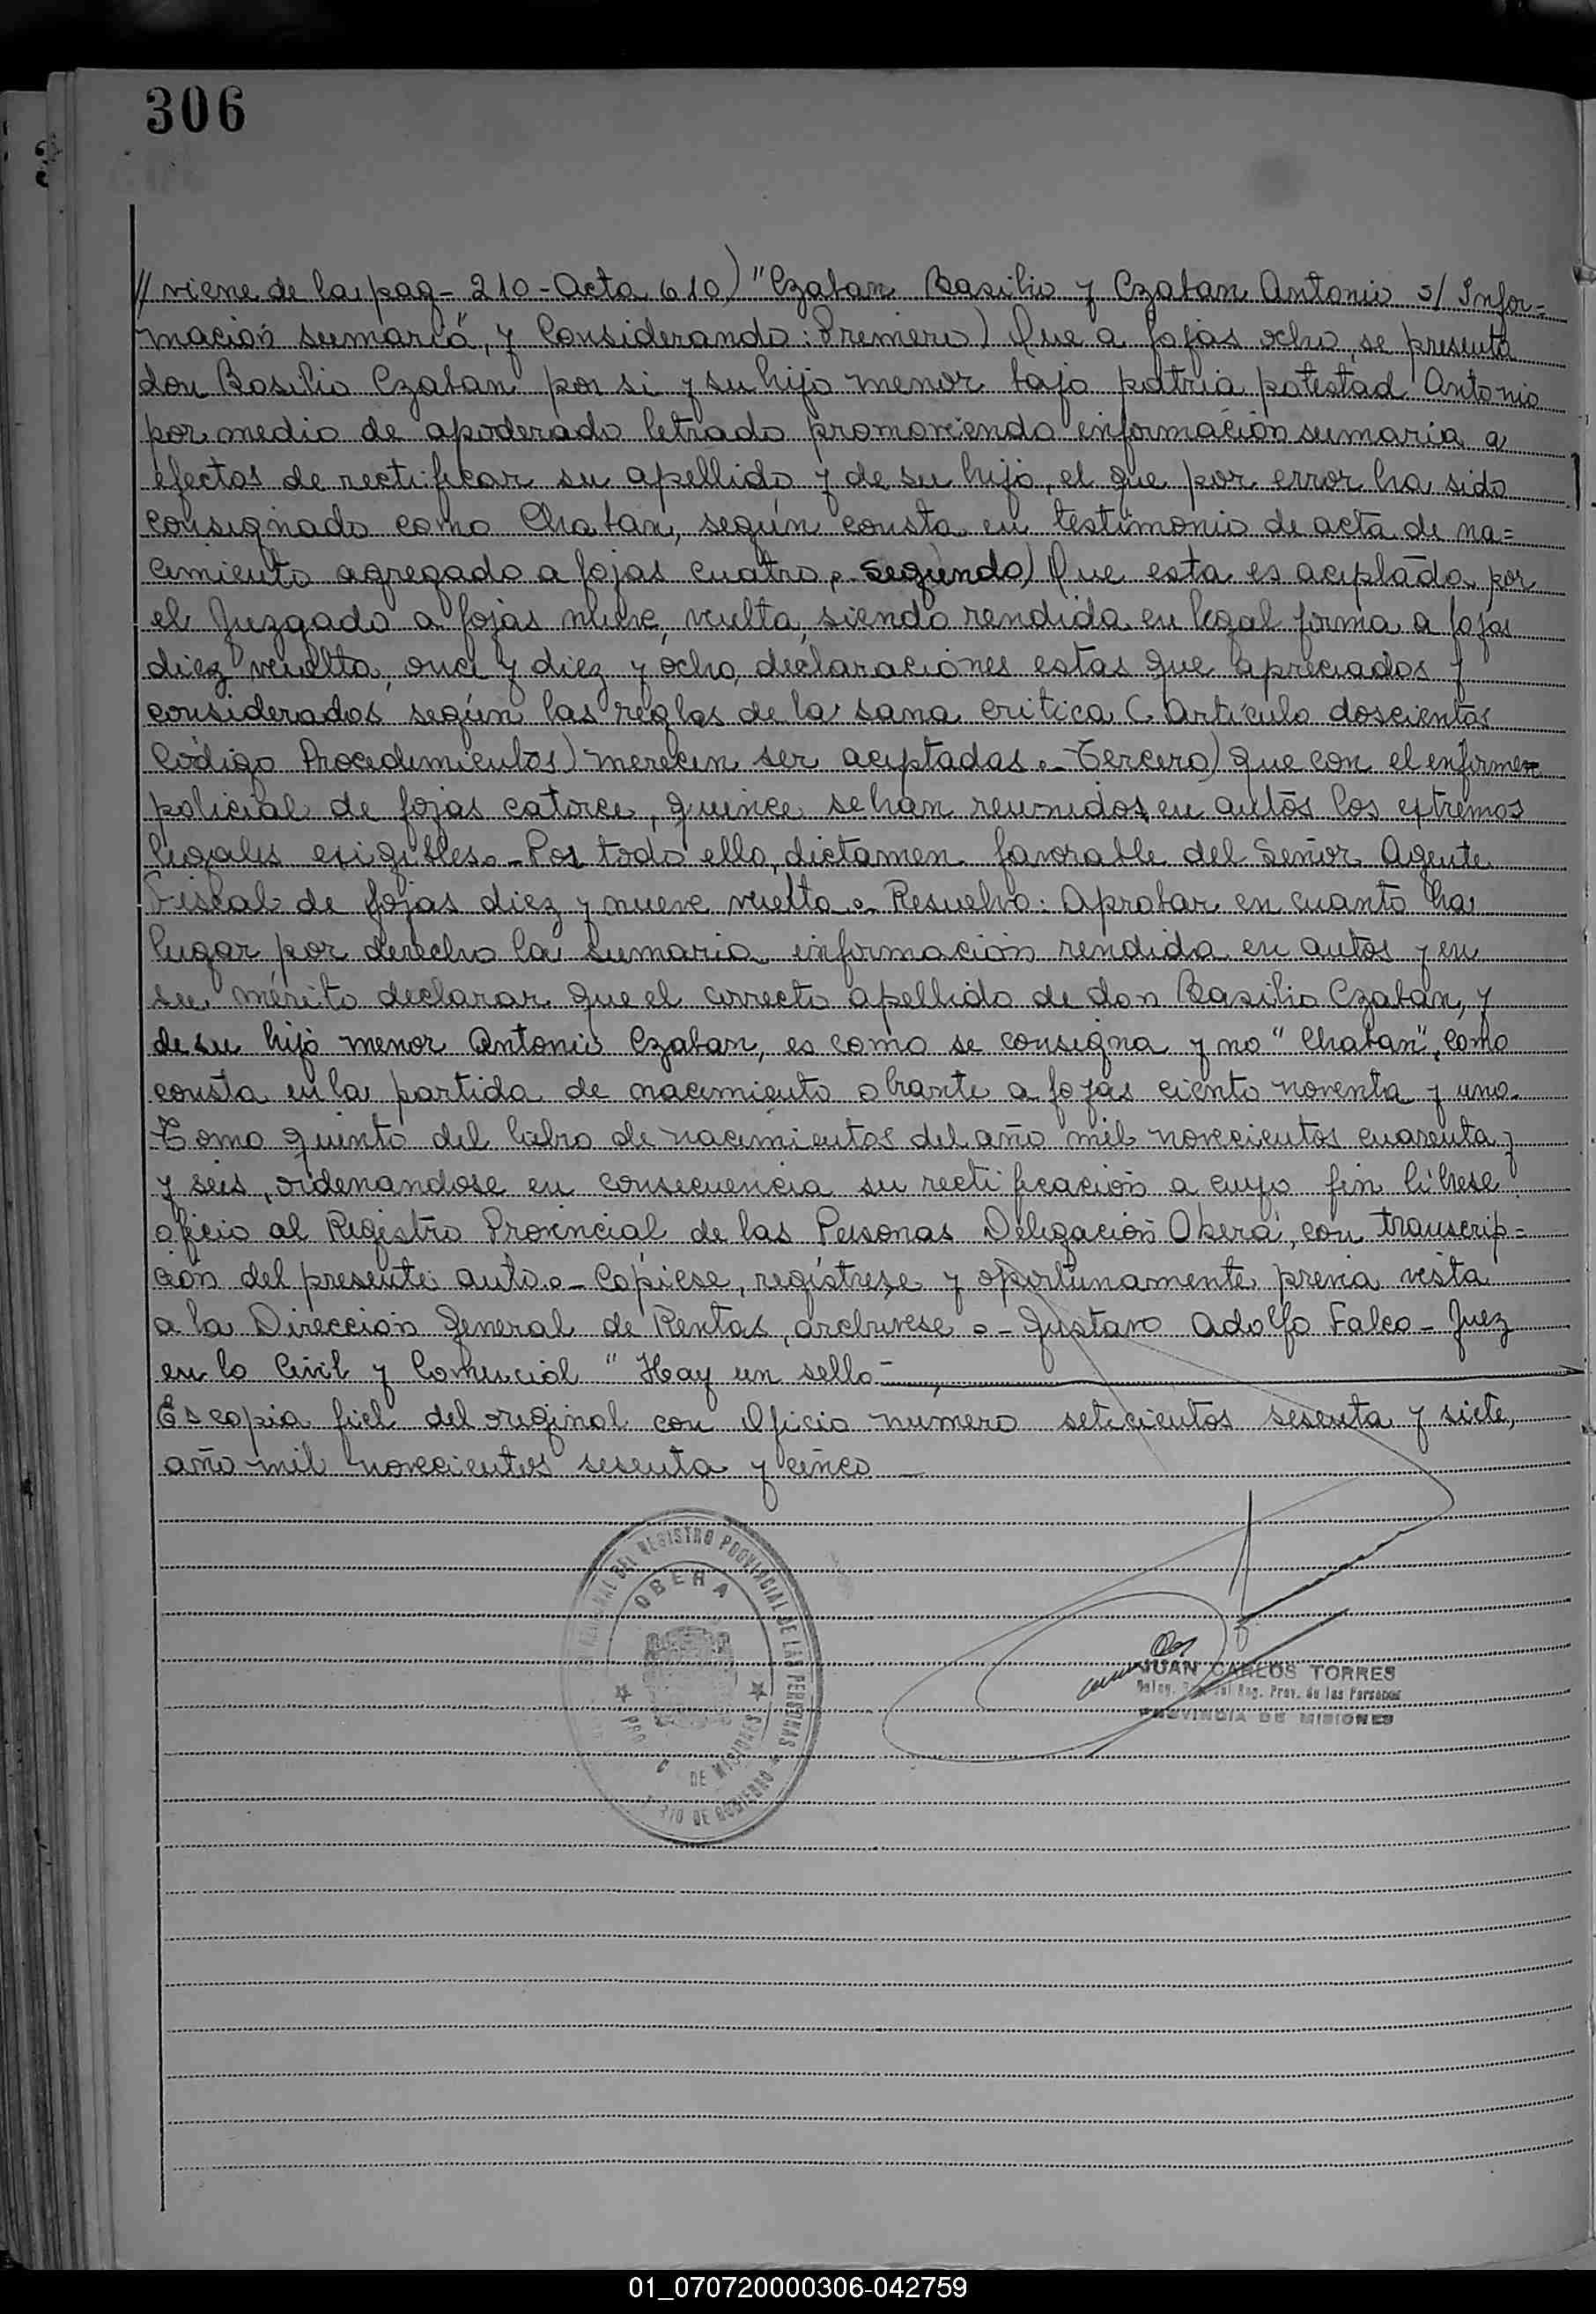 306
// viene de la pag - 210 - Acta 610) "Czaban Basilio y Czaban Antonio s/ Infor=
macion sumaria", y Considerando: Primero) Que a fojas ocho, se presenta
don Basilio Czaban por si y su hijo menor bajo patria potestad Antonio
por medio de apoderado letrado promoviendo información sumaria a
efectos de rectificar su apellido y de su hijo, el que por error ha sido
consignado como Chaban, según consta en testimonio de acta de na=
cimiento agregado a fojas cuatro.- Segundo) Que esta es aceptada por
el Juzgado a fojas nueve, vuelta, siendo rendida en legal forma a fojas
diez vuelta, once y diez y ocho, declaraciones estas que apreciados y
considerados según las reglas de la sana critica (Artículo doscientos
Código Procedimientos) merecen ser aceptadas.- Tercero) Que con el informe
policial de fojas catorce, quince se han reunidos en autos los extremos
legales exigibles.- Por todo ello, dictamen favorable del Señor Agente
Fiscal de fojas diez y nueve vuelta.- Resuelvo: Aprobar en cuanto ha
lugar por derecho la sumaria información rendida en autos y en
su mérito declarar que el correcto apellido de don Basilio Czaban, y
de su hijo menor Antonio Czaban, es como se consigna y no "Chaban", como
consta en la partida de nacimiento obrante a fojas ciento noventa y uno
Tomo quinto del libro de nacimientos del año mil novecientos cuarenta y
y seis, ordenandose en consecuencia su rectificación a cuyo fin líbrese
oficio al Registro Provincial de las Personas Delegación Oberá, con transcrip=
ción del presente auto.- Cópiese, regístrese y oportunamente previa vista
a la Dirección General de Rentas, archivese.- Gustavo Adolfo Falco - Juez
en lo Civil y Comercial "Hay un sello-
Es copia fiel del original con Oficio numero setecientos sesenta y siete,
año mil novecientos sesenta y cinco
DEL REGISTRO PROVINCIAL DE LAS PERSONAS
OBERA
DE MISIONES
DE GOBIERNO
JUAN CARLOS TORRES
Reg. Prov. de las Personas
PROVINCIA DE MISIONES
01_070720000306-042759